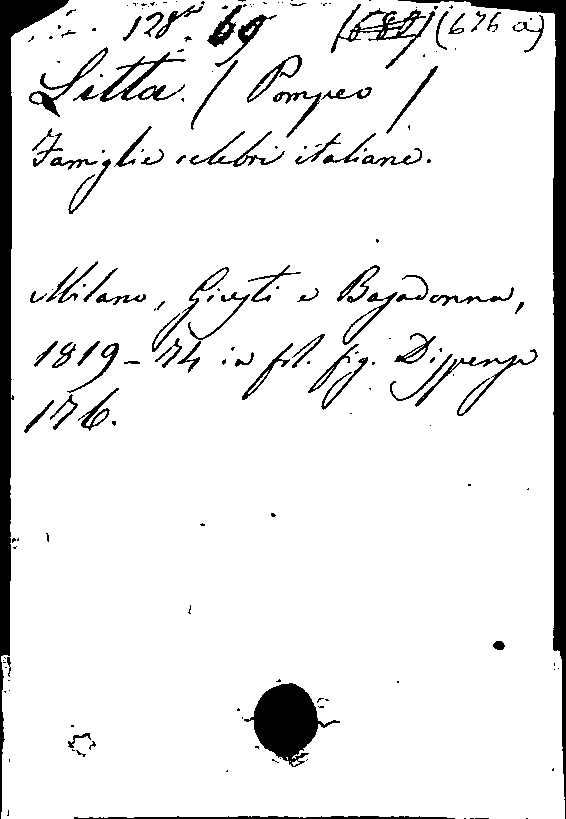 128 60 (688) (676 a)
Litta. (Pompeo)
Famiglie celebri italiane.
Milano, Giusti e Basadonna,
1819-74 in fol. fig. Dispense
176.